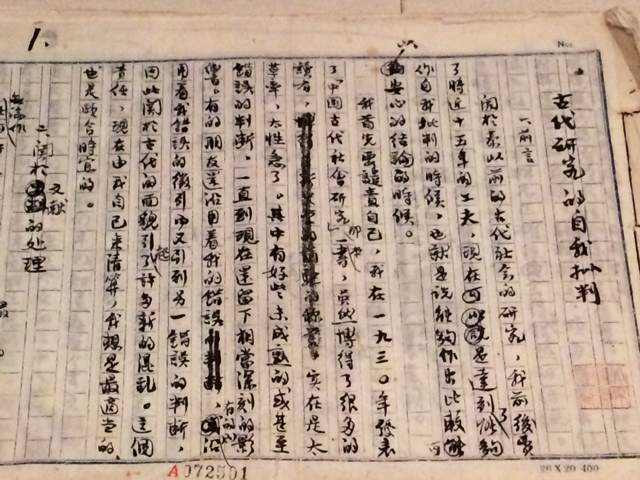 古代研究的自我批判
一、前言
关于秦以前的古代社会的研究，我前後费
了将近十五年的工夫，现在是达到了能夠
作自我批判的时候，也就是说能夠作出比較可
安心的结論的时候。
我首先要譴責自己，我在一九三〇年發表
了「中国古代社会研究」那一書，虽然博得了很多的
讀者，实在是太
草率，太性急了。其中有好些未成熟的或甚至
錯誤的判断，一直到现在還留下相當深刻的影
響。有的朋友還沿用着我的錯誤，有的則沿
用着我錯誤的徵引而又引到另一錯誤的判断，
因此関於古代的面貌引起了許多新的混乱。這個
責任，现在由我自己来清算，我想是最適当的，
也是颇合时宜的。
二、関於文献的处理
1.
No.
A072501
20 X 20 400